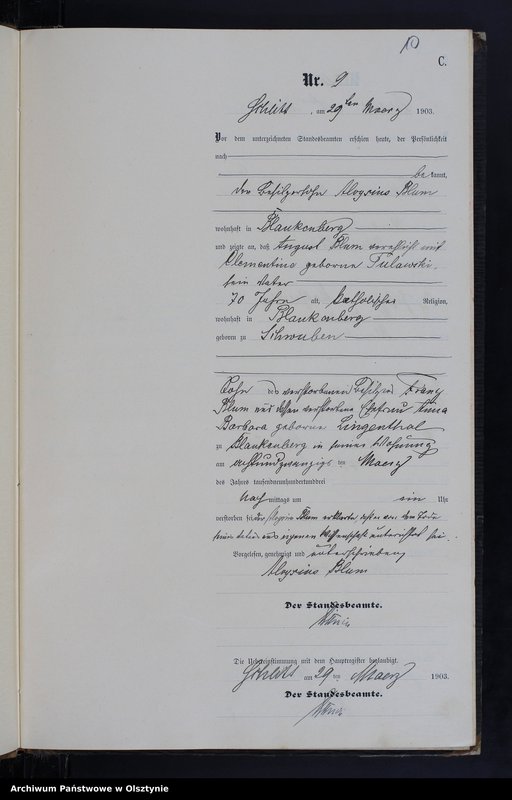 10
C.
Nr. 9
Schlitt, am 29ten Maerz 1903.
Vor dem unterzeichneten Standesbeamten erschien heute, der Persönlichkeit
nach
be kannt,
der Besitzersohn Aloysius Blum
wohnhaft in Blankenberg
und zeigte an, daß August Blum verehlicht mit
Clementine geborene Tulawski,
sein Vater
70 Jahre alt, katholischer Religion,
wohnhaft in Blankenberg
geboren zu Schwuben
Sohn des verstorbenen Besitzers Franz
Blum und dessen verstorbene Ehefrau Anna
Barbara geborene Lingenthal
zu Blankenberg in seiner Wohnung
am achtundzwanzigsten Maerz
des Jahres tausendneunhundertunddrei
Nach mittags um ein Uhr
verstorben sei. Aloysius Blum erklärte, daß er von dem Tode
aus eigener Wissenschaft unterrichtet sei.
Vorgelesen, genehmigt und unterschrieben
Aloysius Blum
Der Standesbeamte.
Die Uebereinstimmung mit dem Hauptregister beglaubigt.
Schlitt am 29 ten Maerz 1903.
Der Standesbeamte.
Archiwum Państwowe w Olsztynie